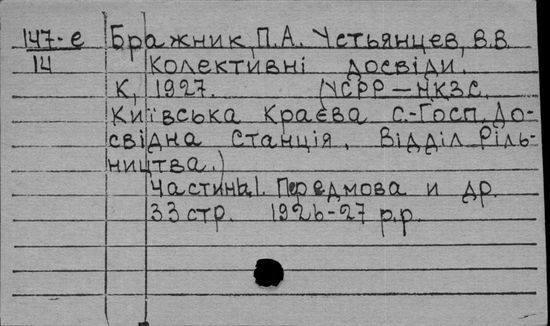 147-е Бражник, П.А. Устьянцев, В.В.
14 Колективні досвіди.
К, 1927. (УСРР — НКЗС.
Київська Краєва С.-Госп. До-
свідна Станція. Відділ Ріль-
ництва.)
Частина 1. Передмова и др.
33 стр. 1926-27 р.р.